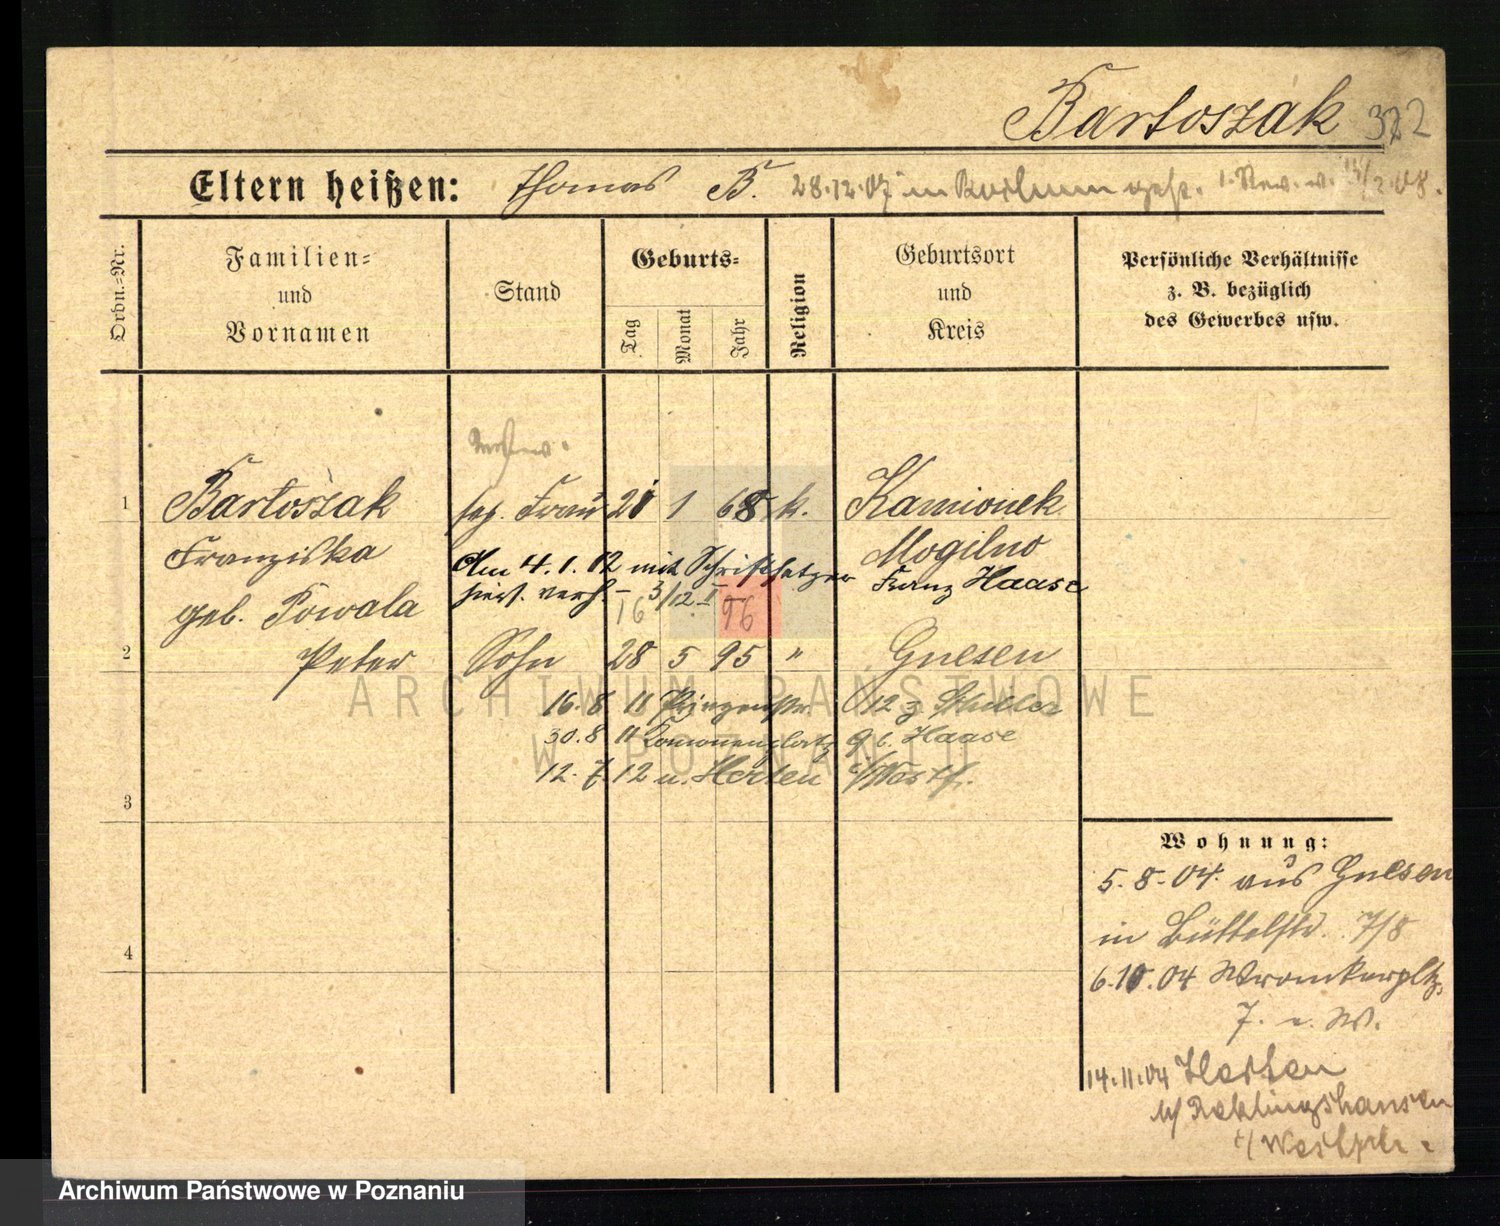 Bartoszak 322
Eltern heißen: Thomas B. 28.12.07 in Bochum gest.
Ordn.-Nr.
Familien-
und
Vornamen
Stand
Geburts-
Tag
Monat
Jahr
Religion
Geburtsort
und
Kreis
Persönliche Verhältnisse
z. B. bezüglich
des Gewerbes usw.
1 Bartoszak sep. Frau 1 68 k. Kamionek
Franziska Mogilno
Am 4.1.12 mit Schriftsetzer Franz Haase
hiers. verh. 3/12 II
geb. Powala 16 96
2 Peter Sohn 28 5 95 " Gnesen
16.8 11 12 z
30.8 11 9 b. Haase
12.7.12 n. Herten i/Westf.
3
4
Wohnung:
5.8.04. aus Gnesen
in Büttelstr. 7/8
6.10.04 Wronkerpltz.
7. n. W.
14.11.04 Herten
b/ Reklingshausen
i/
ARCHIWUM PAŃSTWOWE
W POZNANIU
Archiwum Państwowe w Poznaniu